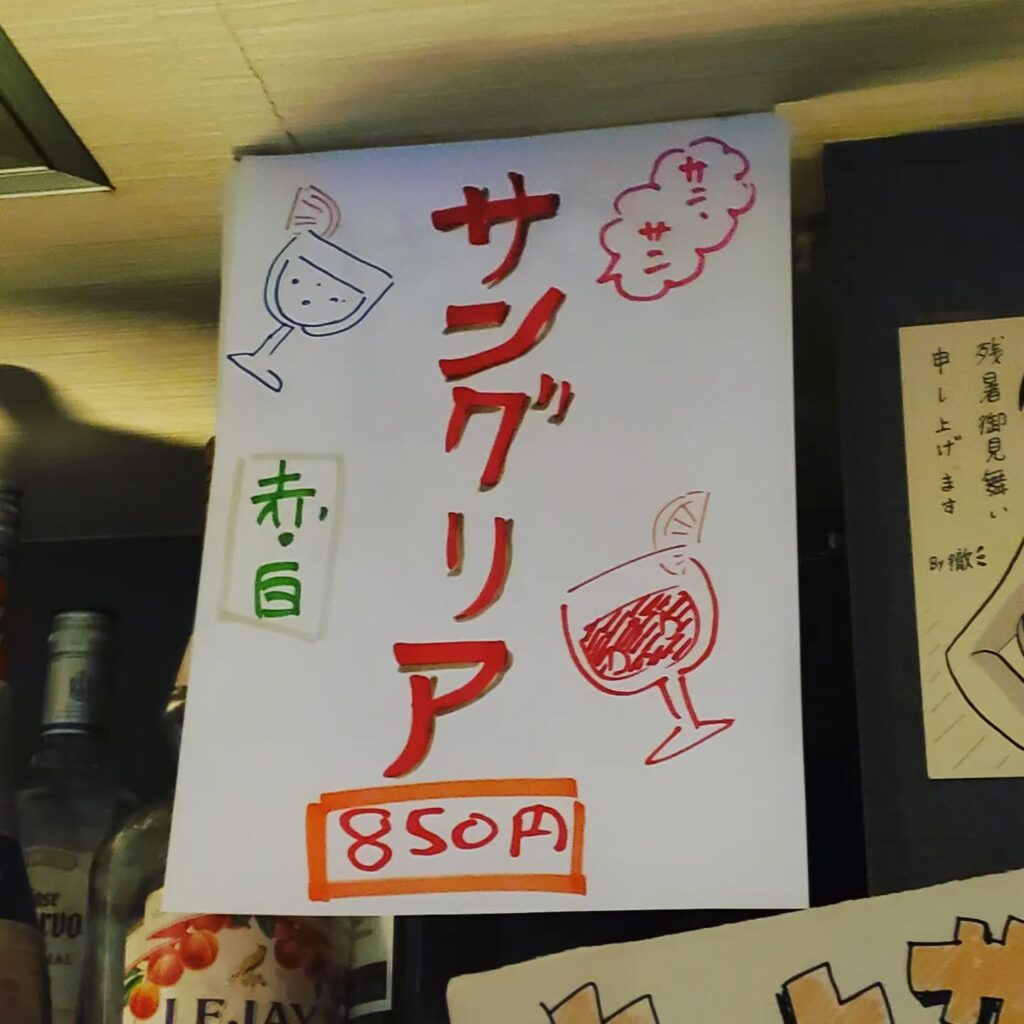 サングリア
サニ、
サニ
赤・白
850円
残暑御見舞い
申し上げます
By 徹ミ
LEJAY